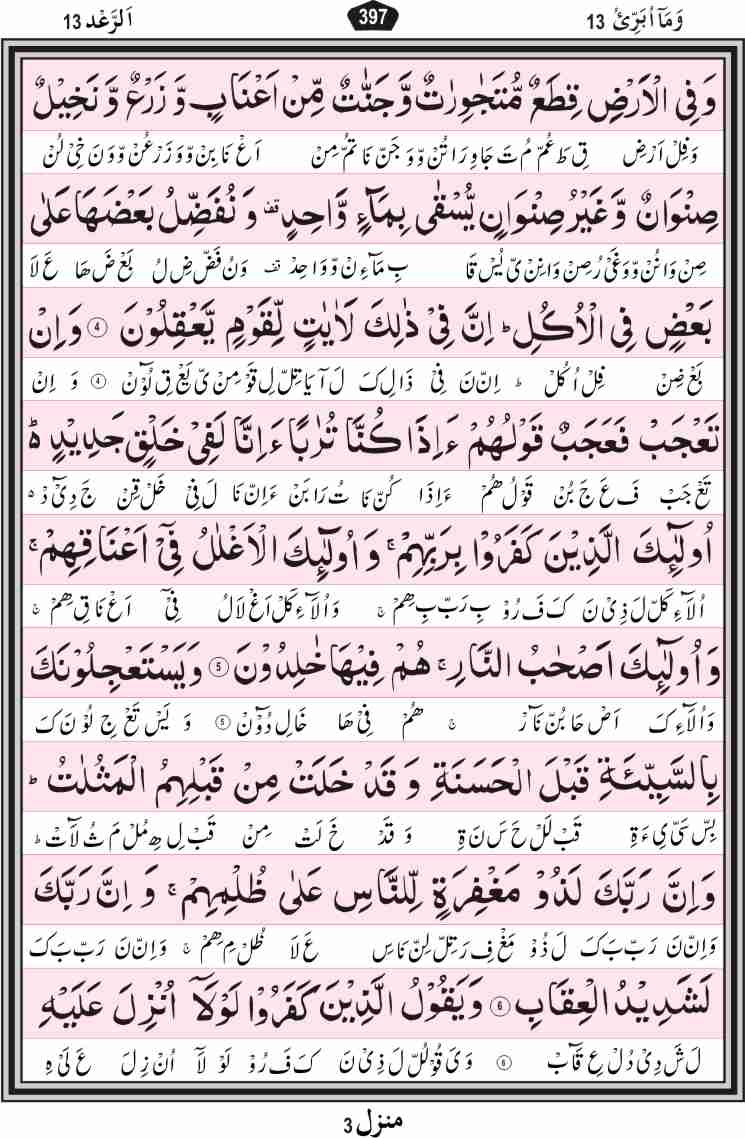 وَمَآ اُبَرِّئُ 13
397
اَلرَّعْد 13
وَفِی الْاَرْضِ قِطَعٌ مُّتَجٰوِرٰتٌ وَّجَنّٰتٌ مِّنْ اَعْنَابٍ وَّ زَرْعٌ وَّ نَخِیْلٌ
وَفِلْ اَرْضِ قِ طَ عُمْ مُ تَ جَاوِرَاتُنْ وَّوَ جَنْ نَا تُمْ مِنْ اَعْ نَابِنْ وَّوَزَرْعُنْ وَّوَنَ خِیْ لُنْ
صِنْوَانٌ وَّغَیْرُ صِنْوَانٍ یُّسْقٰی بِمَآءٍ وَّاحِدٍ ۫ وَ نُفَضِّلُ بَعْضَهَا عَلٰی
صِنْ وَانُنْ وَّوَغَیْ رُصِنْ وَانِنْ یُّ یُسْ قَا بِ مَآءِنْ وَّوَاحِدْ وَنُ فَضْ ضِ لُ بَعْ ضَ هَا عَ لَا
بَعْضٍ فِی الْاُكُلِ ؕ اِنَّ فِیْ ذٰلِكَ لَاٰیٰتٍ لِّقَوْمٍ یَّعْقِلُوْنَ ۴ وَاِنْ
بَعْ ضِنْ فِلْ اُكُلْ ؕ اِنْ نَ فِیْ ذَالِ كَ لَ آیَاتِلْ لِ قَوْ مِنْ یَّ یَعْ قِ لُوْٓنْ ۴ وَ اِنْ
تَعْجَبْ فَعَجَبٌ قَوْلُهُمْ ءَاِذَا كُنَّا تُرٰبًا ءَاِنَّا لَفِیْ خَلْقٍ جَدِیْدٍ ۬ؕ
تَعْ جَبْ فَ عَ جَ بُنْ قَوْلُ هُمْ ءَاِذَا كُنْ نَا تُ رَابَنْ ءَاِنْ نَا لَ فِیْ خَلْ قِنْ جَ دِیْٓ دْ
اُولٰٓئِكَ الَّذِیْنَ كَفَرُوْا بِرَبِّهِمْ ۚ وَ اُولٰٓئِكَ الْاَغْلٰلُ فِیْۤ اَعْنَاقِهِمْ ۚ
اُلَآءِ كَلْ لَ ذِیْ نَ كَ فَ رُوْ بِ رَبْ بِ هِمْ ۚ وَاُلَآءِ كَلْ اَغْ لَالُ فِیْٓ اَعْ نَاقِ هِمْ ۚ
وَ اُولٰٓئِكَ اَصْحٰبُ النَّارِ ۚ هُمْ فِیْهَا خٰلِدُوْنَ ۵ وَیَسْتَعْجِلُوْنَكَ
وَاُلَآءِ كَ اَصْ حَابُنْ نَآرْ ۚ هُمْ فِیْ هَا خَالِ دُوْٓنْ ۵ وَ یَسْ تَعْ جِ لُوْنَ كَ
بِالسَّیِّئَةِ قَبْلَ الْحَسَنَةِ وَ قَدْ خَلَتْ مِنْ قَبْلِهِمُ الْمَثُلٰتُ ؕ
بِسْ سَیْ یِ ءَةِ قَبْ لَلْ حَ سَ نَ ةِ وَ قَدْ خَ لَتْ مِنْ قَبْ لِ هِ مُلْ مَ ثُ لَآتْ ؕ
وَاِنَّ رَبَّكَ لَذُوْ مَغْفِرَةٍ لِّلنَّاسِ عَلٰی ظُلْمِهِمْ ۚ وَ اِنَّ رَبَّكَ
وَاِنْ نَ رَبْ بَ كَ لَ ذُوْ مَغْ فِ رَ تِلْ لِنْ نَاسِ عَ لَا ظُلْ مِ هِمْ ۚ وَاِنْ نَ رَبْ بَ كَ
لَشَدِیْدُ الْعِقَابِ ۶ وَیَقُوْلُ الَّذِیْنَ كَفَرُوْا لَوْلَاۤ اُنْزِلَ عَلَیْهِ
لَ شَ دِیْ دُلْ عِ قَآبْ ۶ وَیَ قُوْلُلْ لَ ذِیْ نَ كَ فَ رُوْ لَوْ لَآ اُنْ زِ لَ عَ لَیْ هِ
منزل 3